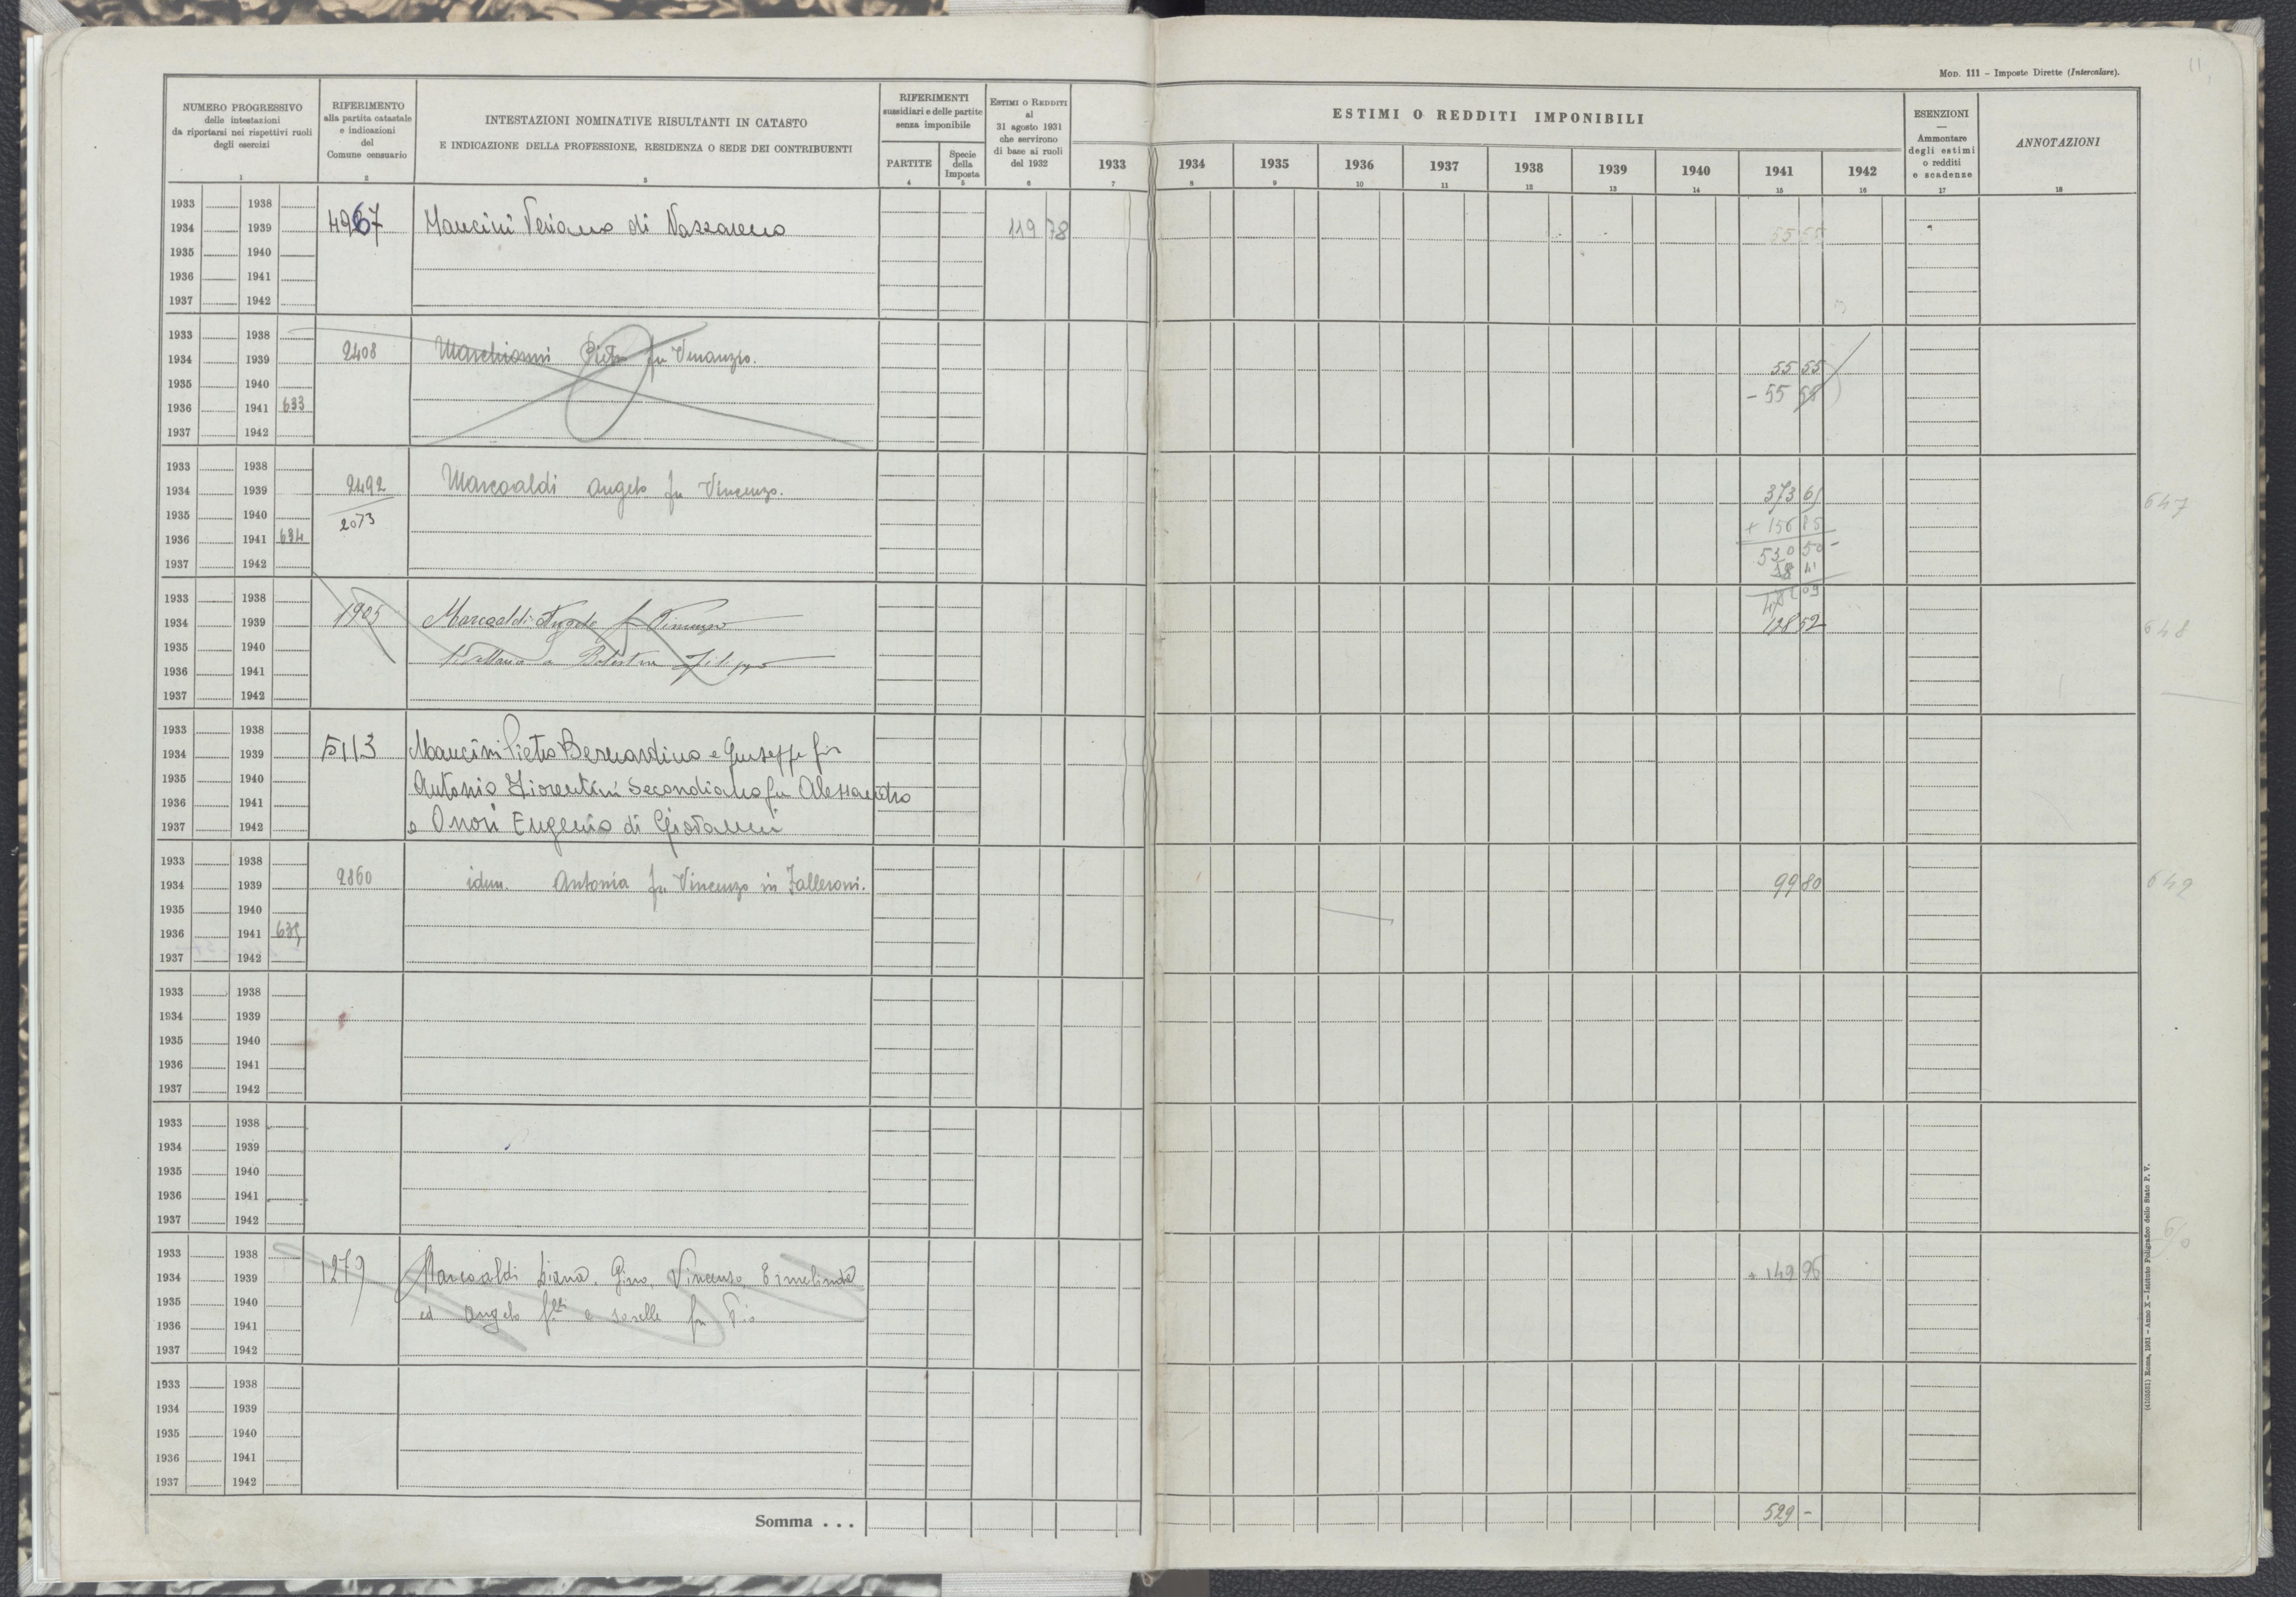 MOD. 111 – Imposte Dirette (Intercalare).
11
NUMERO PROGRESSIVO
delle intestazioni
da riportarsi nei rispettivi ruoli
degli esercizi
1
RIFERIMENTO
alla partita catastale
e indicazioni
del
Comune censuario
2
INTESTAZIONI NOMINATIVE RISULTANTI IN CATASTO
E INDICAZIONE DELLA PROFESSIONE, RESIDENZA O SEDE DEI CONTRIBUENTI
3
RIFERIMENTI
sussidiari e delle partite
senza imponibile
PARTITE
4
Specie
della
Imposta
5
ESTIMI O REDDITI
al
31 agosto 1931
che servirono
di base ai ruoli
del 1932
6
ESTIMI O REDDITI IMPONIBILI
1933 1934 1935 1936 1937 1938 1939 1940 1941 1942
7 8 9 10 11 12 13 14 15 16
ESENZIONI
—
Ammontare
degli estimi
o redditi
e scadenze
17
ANNOTAZIONI
18
1933 1938
1934 1939 4967 Mancini Veriano di Nazzareno 119 78 55 55
1935 1940
1936 1941
1937 1942
1933 1938
1934 1939 2408 Marchionni Pietro fu Venanzio. 55 55
1935 1940
1936 1941 633 - 55 55
1937 1942
1933 1938
1934 1939 2492 Marcoaldi Angelo fu Vincenzo. 373 65 647
1935 1940 2073 + 156 85
1936 1941 634 530 50 -
1937 1942
1933 1938
1934 1939 1905 Marcoaldi Angelo fu Vincenzo 128 52 648
1935 1940
1936 1941
1937 1942
1933 1938
1934 1939 5113 Mancini Pietro Bernardino e Giuseppe fu
1935 1940 Antonio Fiorentini Secondiano fu Alessandro
1936 1941
1937 1942 e Onori Eugenio di Giovanni
1933 1938
1934 1939 2860 idem. Antonia fu Vincenzo in Talleroni. 99 80 649
1935 1940
1936 1941 635
1937 1942
1933 1938
1934 1939
1935 1940
1936 1941
1937 1942
1933 1938
1934 1939
1935 1940
1936 1941
1937 1942
1933 1938
1934 1939 1279 Marcoaldi Diana, Gino, Vincenzo, Ermelinda + 149 96
1935 1940 ed Angelo f.lli e sorelle fu Pio
1936 1941
1937 1942
1933 1938
1934 1939
1935 1940
1936 1941
1937 1942
Somma . . . 529 -
(4103531) Roma, 1931 – Anno X – Istituto Poligrafico dello Stato P. V.